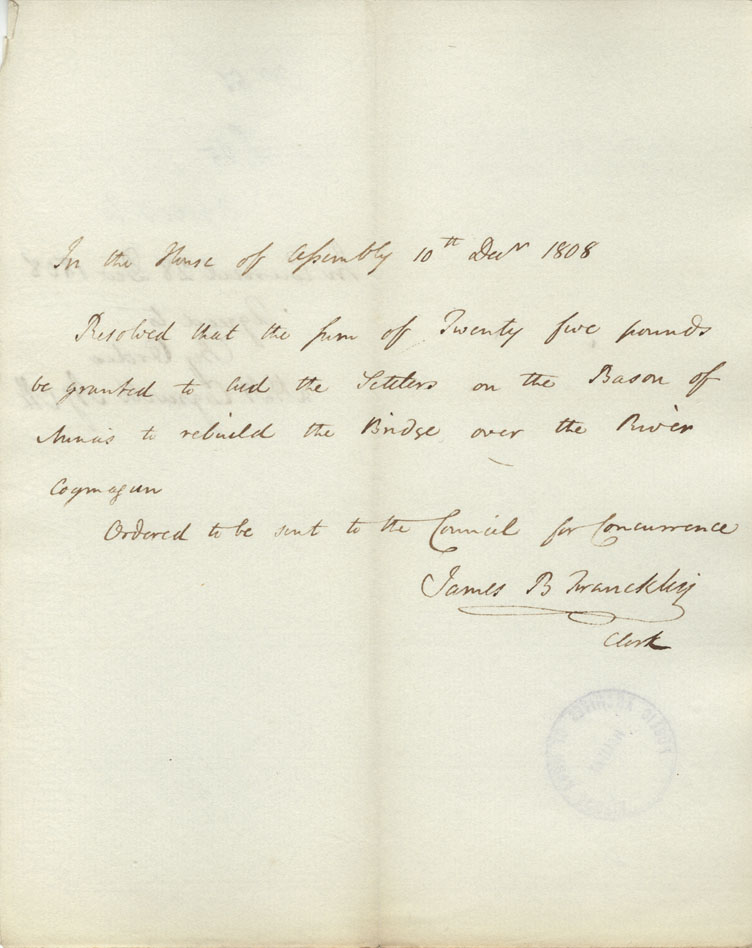 In the House of Assembly 10th Decr 1808
Resolved that the sum of Twenty five pounds
be granted to aid the Settlers on the Bason of
Minas to rebuild the Bridge over the River
Cogmagun
Ordered to be sent to the Council for Concurrence
James B Francklin
Clerk